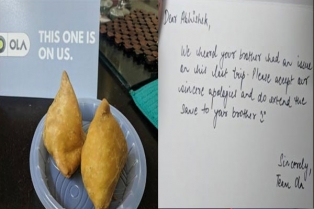 OLA
THIS ONE IS
ON US.
Dear Abhishek,
We heard your brother had an issue
on his last trip. Please accept our
sincere apologies and do extend the
same to your brother
Sincerely,
Team Ola